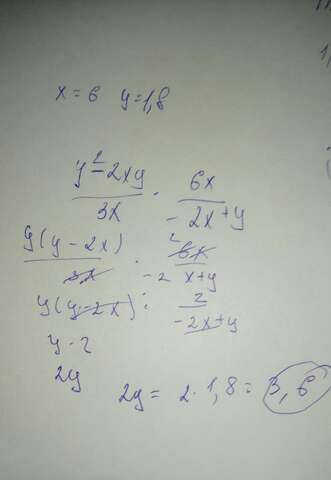 x = 6 y = 1,8
y² - 2xy / 3x · 6x / -2x + y
y(y - 2x) / 3x · 2 6x / -2 x + y
y(y - 2x) : 2 / -2x + y
y · 2
2y
2y = 2 · 1,8 = 3,6